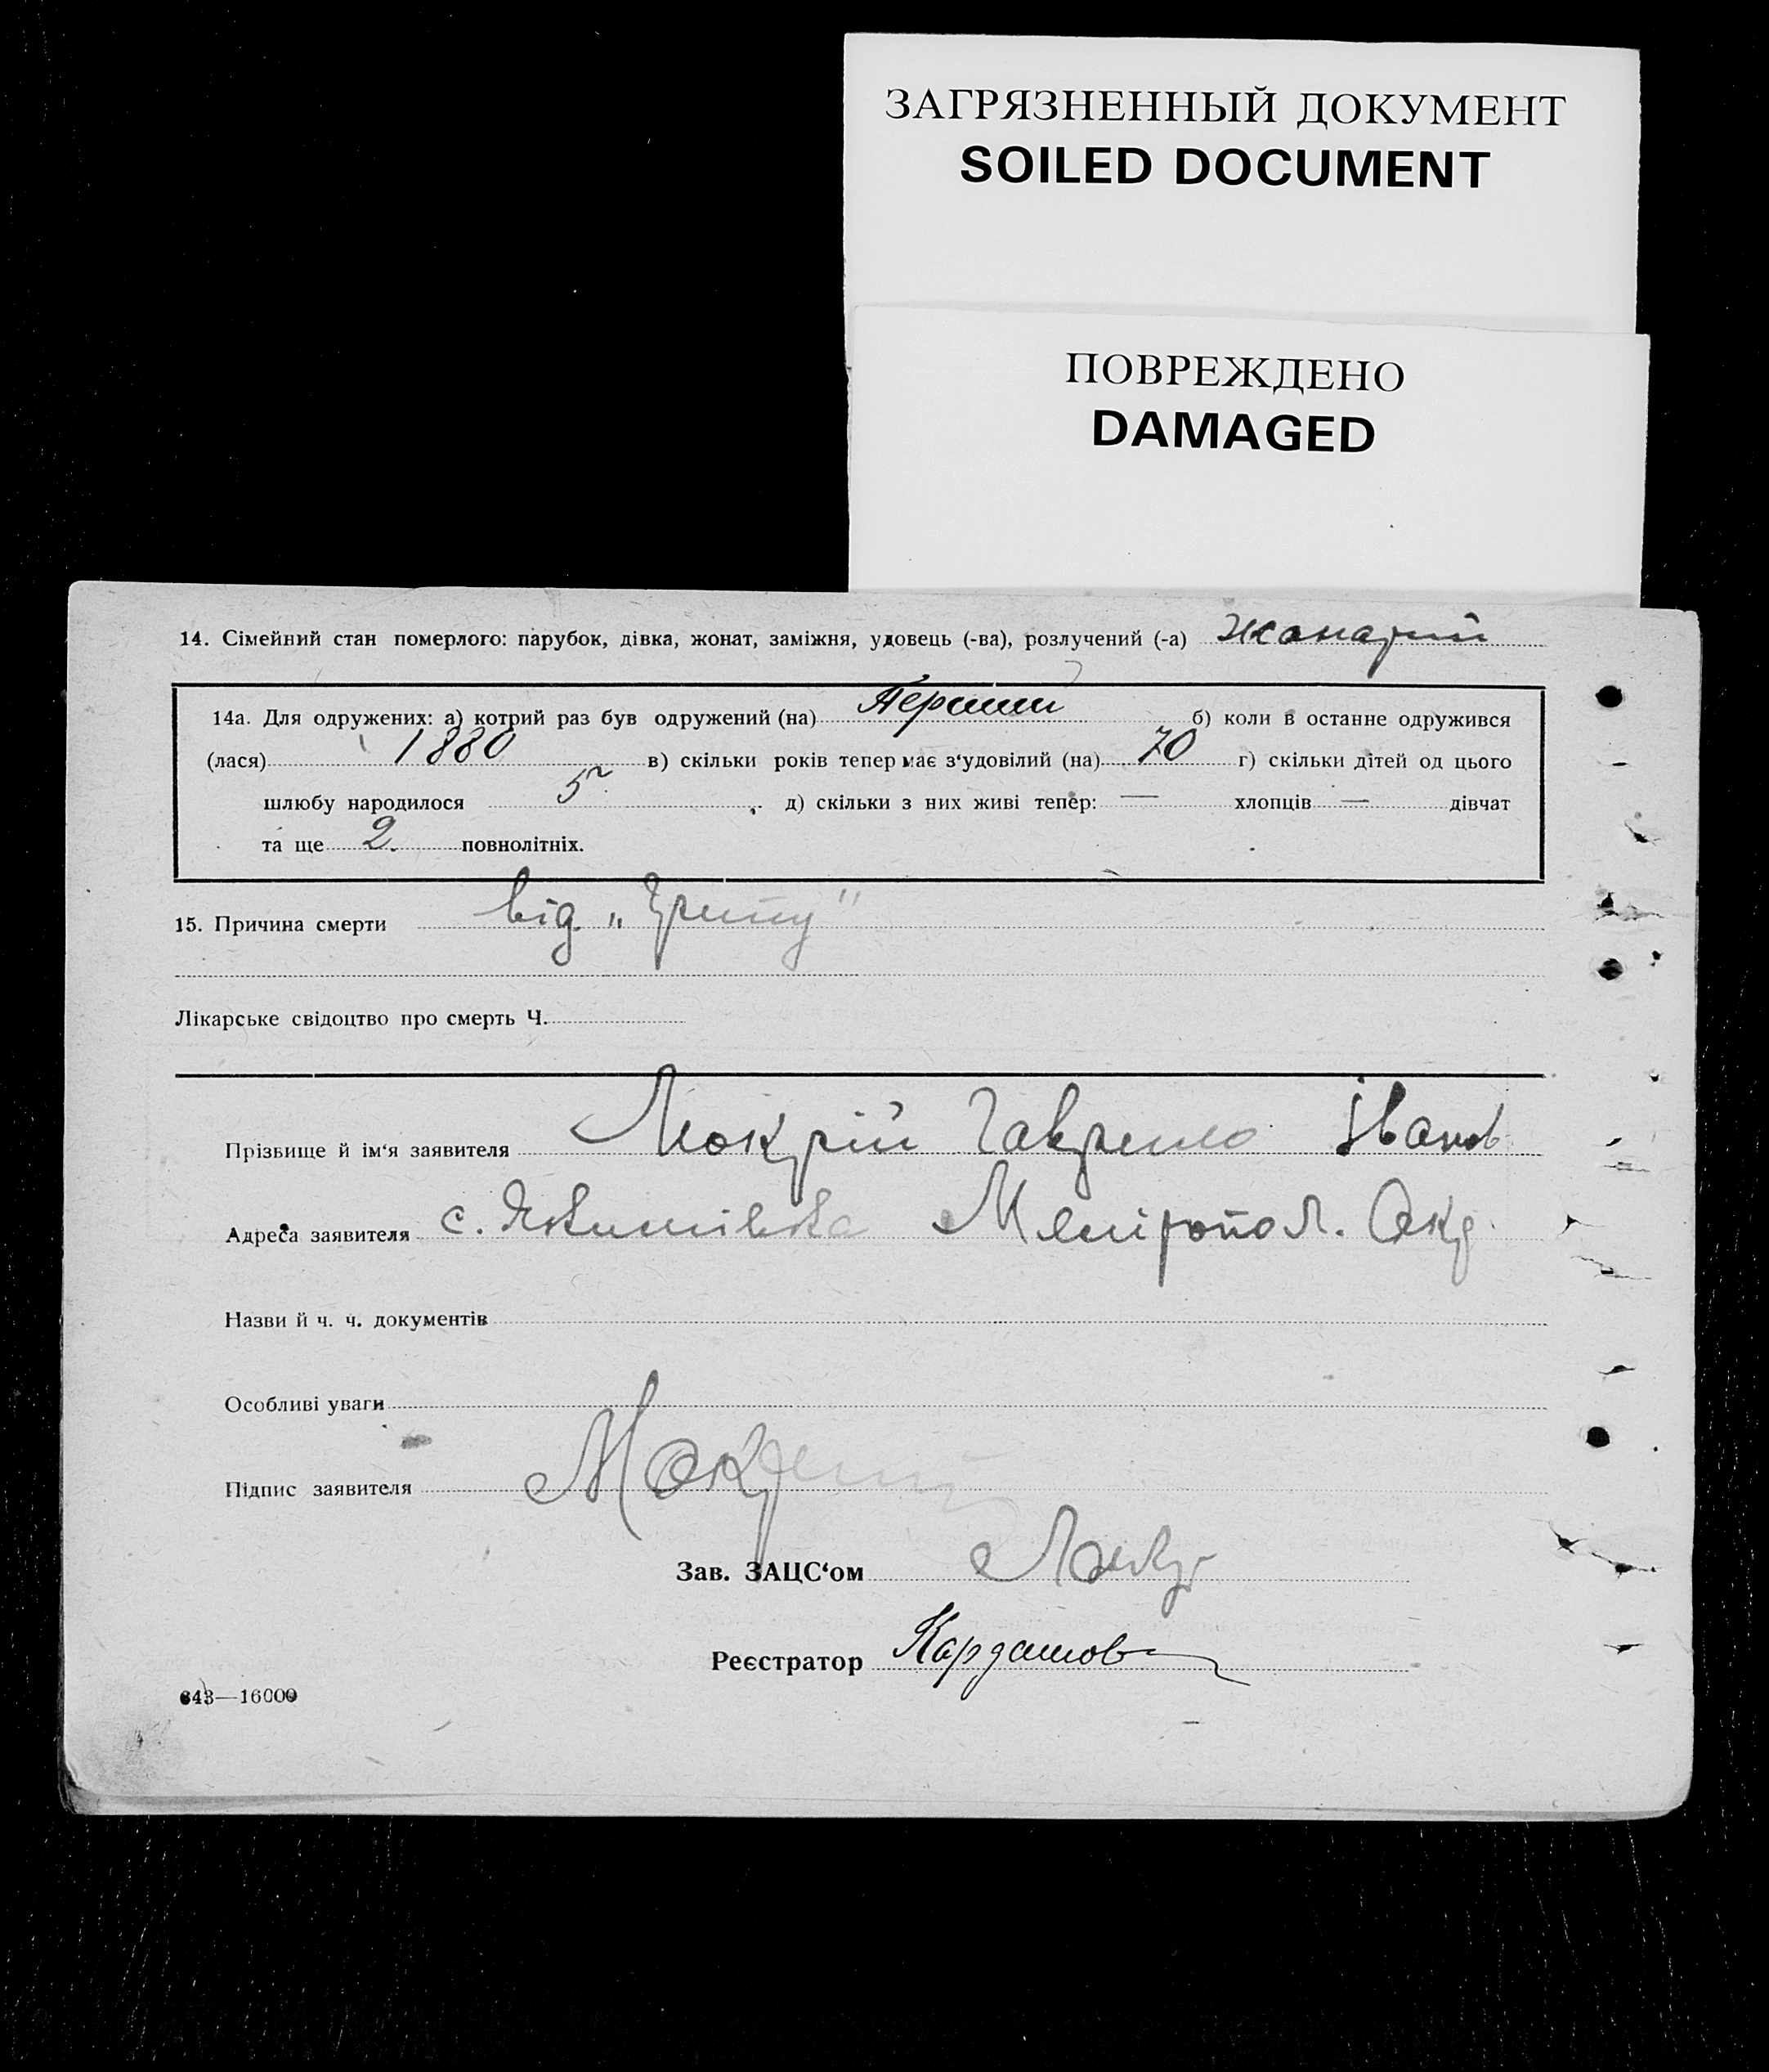 ЗАГРЯЗНЕННЫЙ ДОКУМЕНТ
SOILED DOCUMENT
ПОВРЕЖДЕНО
DAMAGED
14. Сімейний стан померлого: парубок, дівка, жонат, заміжня, удовець (-ва), розлучений (-а)
14а. Для одружених: а) котрий раз був одружений (на) Перший б) коли в останнє одружився
(лася) 1880 в) скільки років тепер має з‘удовілий (на) 70 г) скільки дітей од цього
шлюбу народилося 5 д) скільки з них живі тепер: — хлопців — дівчат
та ще 2 повнолітніх.
15. Причина смерти від „Грипу“
Лікарське свідоцтво про смерть Ч.
Прізвище й ім‘я заявителя Мокрій Гаврило Іванов
Адреса заявителя с. Якимівка Меліропол. Окр
Назви й ч. ч. документів
Особливі уваги
Підпис заявителя
Зав. ЗАЦС‘ом
Реєстратор Кардашов
643—16000